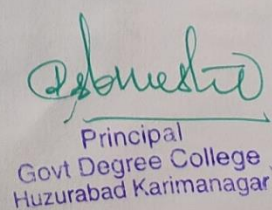 Principal
Govt Degree College
Huzurabad Karimanagar